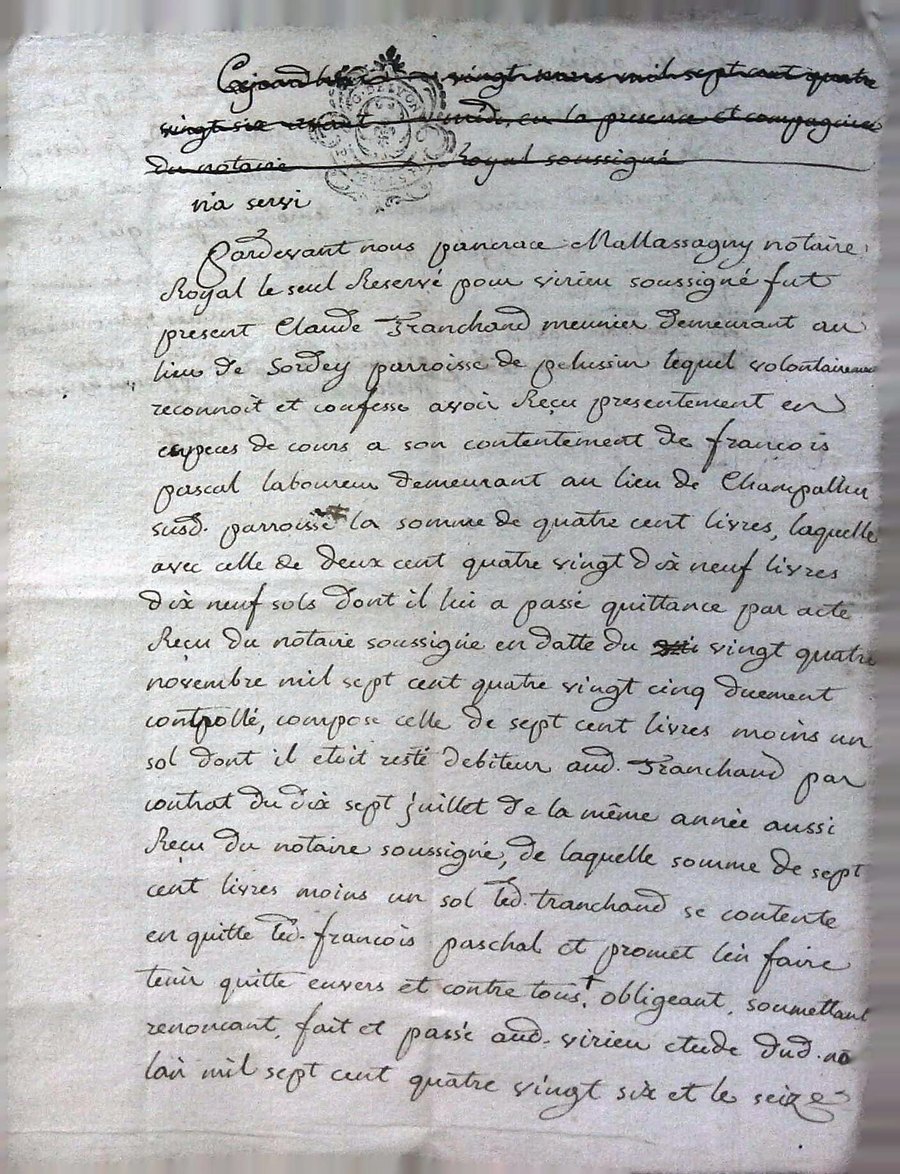 Cejourd'huy vingt mars mil sept cent quatre
vingt six avant midi, en la presence et compagnie
du notaire Royal soussigné
n'a servi
Pardevant nous pancrace Mallassagny notaire
Royal le seul Reservé pour virieu soussigné fut
present Claude Tranchand meunier demeurant au
lieu de Sordey parroisse de pelussin lequel volontairement
reconnoit et confesse avoir Reçu presentement en
especes de cours a son contentement de françois
pascal laboureur demeurant au lieu de Champailler
susd. parroisse la somme de quatre cent livres, laquelle
avec celle de deux cent quatre vingt dix neuf livres
dix neuf sols dont il lui a passé quittance par acte
Reçu du notaire soussigné en datte du vingt quatre
novembre mil sept cent quatre vingt cinq duement
controllé, compose celle de sept cent livres moins un
sol dont il etoit resté debiteur aud. Tranchand par
contrat du dix sept juillet de la même année aussi
Reçu du notaire soussigné, de laquelle somme de sept
cent livres moins un sol led. tranchand se contente
en quitte led. françois paschal et promet l'en faire
tenir quitte envers et contre tous, + obligeant, soumettant
renoncant, fait et passé aud. virieu etude dud. no
l'an mil sept cent quatre vingt six et le seize